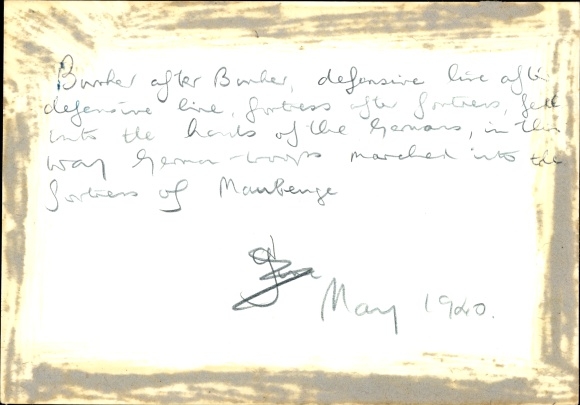 Bunker after Bunker, defensive line after
defensive line, fortress after fortress, fell
into the hands of the Germans, in this
way German troops marched into the
fortress of Maubenge
May 1940.